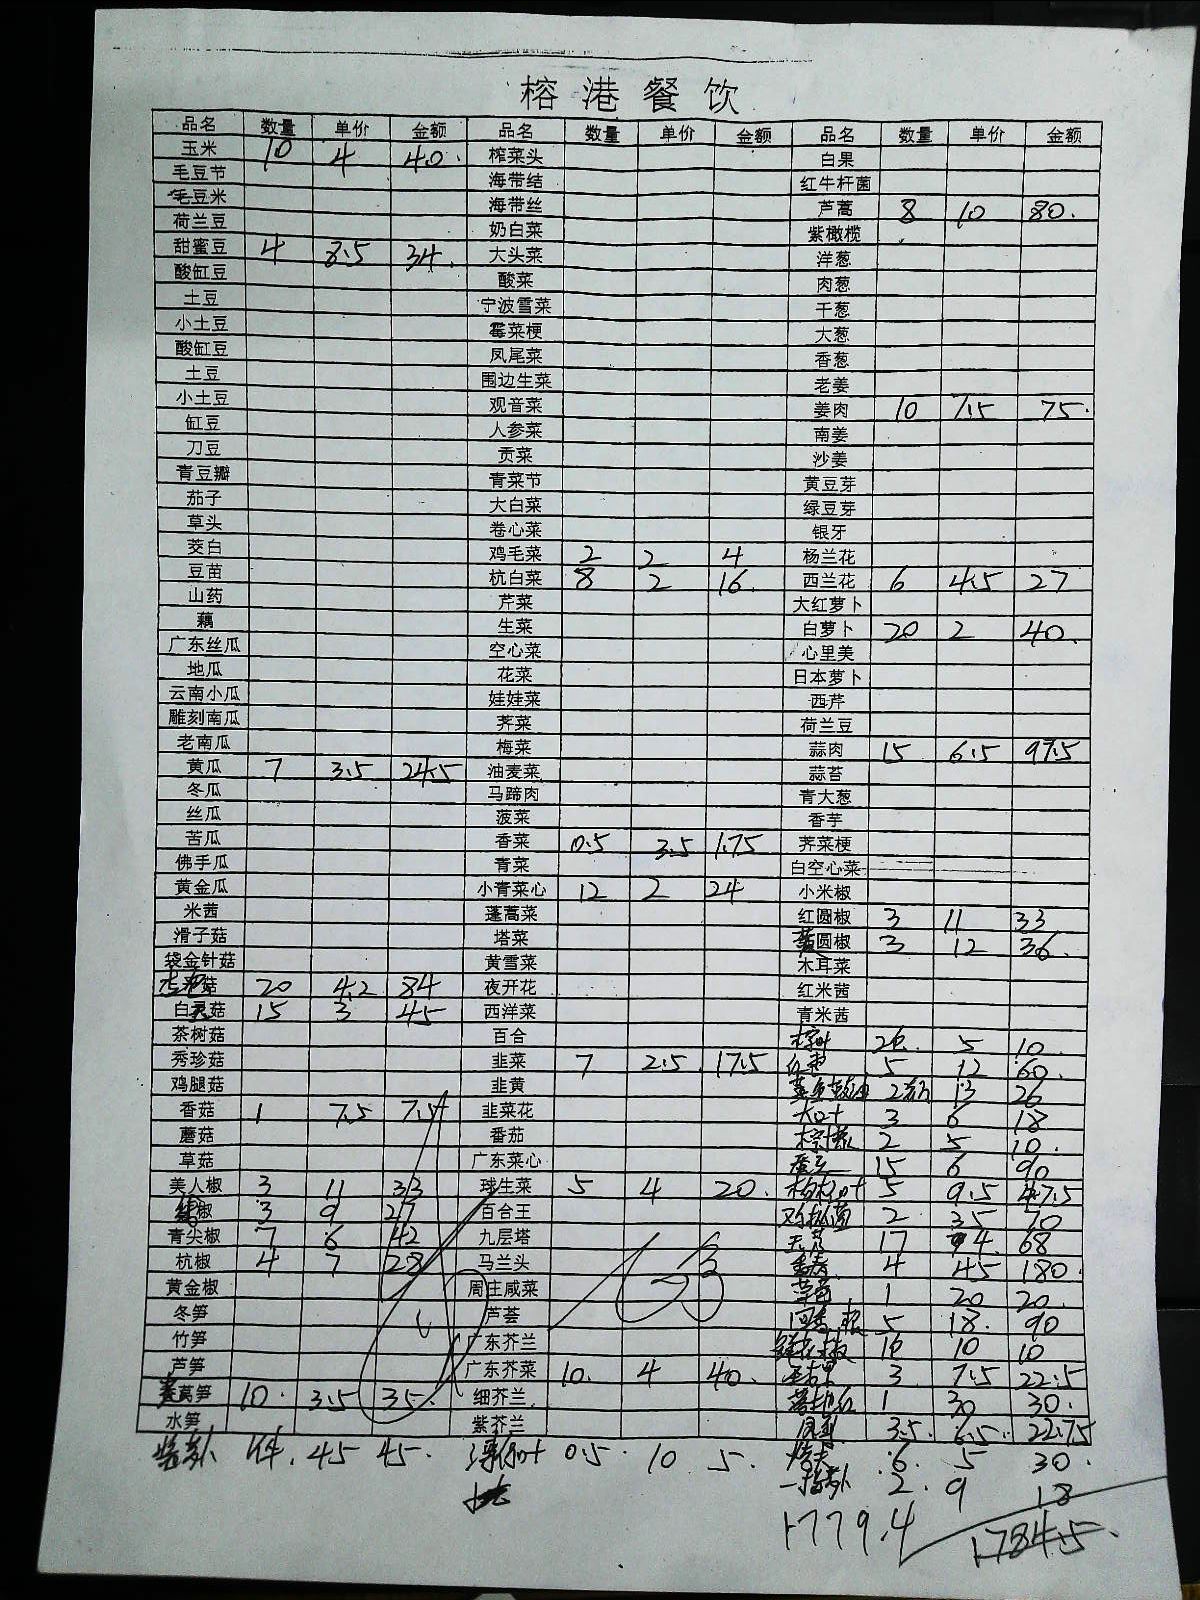 榕港餐饮
品名 数量 单价 金额 品名 数量 单价 金额 品名 数量 单价 金额
玉米 10 4 40. 榨菜头 白果
毛豆节 海带结 红牛杆菌
毛豆米 海带丝 芦蒿 8 10 80.
荷兰豆 奶白菜 紫橄榄
甜蜜豆 4 8.5 34. 大头菜 洋葱
酸缸豆 酸菜 肉葱
土豆 宁波雪菜 干葱
小土豆 霉菜梗 大葱
酸缸豆 凤尾菜 香葱
土豆 围边生菜 老姜
小土豆 观音菜 姜肉 10 7.5 75.
缸豆 人参菜 南姜
刀豆 贡菜 沙姜
青豆瓣 青菜节 黄豆芽
茄子 大白菜 绿豆芽
草头 卷心菜 银牙
茭白 鸡毛菜 2 2 4 杨兰花
豆苗 杭白菜 8 2 16. 西兰花 6 4.5 27
山药 芹菜 大红萝卜
藕 生菜 白萝卜 20 2 40.
广东丝瓜 空心菜 心里美
地瓜 花菜 日本萝卜
云南小瓜 娃娃菜 西芹
雕刻南瓜 荠菜 荷兰豆
老南瓜 梅菜 蒜肉 15 6.5 97.5
黄瓜 7 3.5 24.5 油麦菜 蒜苔
冬瓜 马蹄肉 青大葱
丝瓜 菠菜 香芋
苦瓜 香菜 0.5 3.5 1.75 荠菜梗
佛手瓜 青菜 白空心菜
黄金瓜 小青菜心 12 2 24 小米椒
米茜 蓬蒿菜 红圆椒 3 11 33
滑子菇 塔菜 黄圆椒 3 12 36.
袋金针菇 黄雪菜 木耳菜
菇 20 4.2 84 夜开花 红米茜
白灵菇 15 3 45 西洋菜 青米茜
茶树菇 百合 5 10.
秀珍菇 韭菜 7 2.5 17.5 5 12 60.
鸡腿菇 韭黄 13 26
香菇 1 7.5 7.5 韭菜花 3 6 18
蘑菇 番茄 2 5 10.
草菇 广东菜心 15 6 90
美人椒 3 11 33 球生菜 5 4 20. 5 9.5 47.5
椒 3 9 27 百合王 2 35 70
青尖椒 7 6 42 九层塔 17 4. 68
杭椒 4 7 28 马兰头 4 45 180.
黄金椒 周庄咸菜 草莓 1 20 20.
冬笋 芦荟 5 18. 90
竹笋 广东芥兰 10 10
芦笋 广东芥菜 10. 4 40. 3 7.5 22.5
莴笋 10. 3.5 35. 细芥兰 1 30 30.
水笋 紫芥兰 3.5 6.5 22.75
1件. 45 45. 0.5 10 5. 6 5 30.
2. 9 18
1779.4 1784.5.